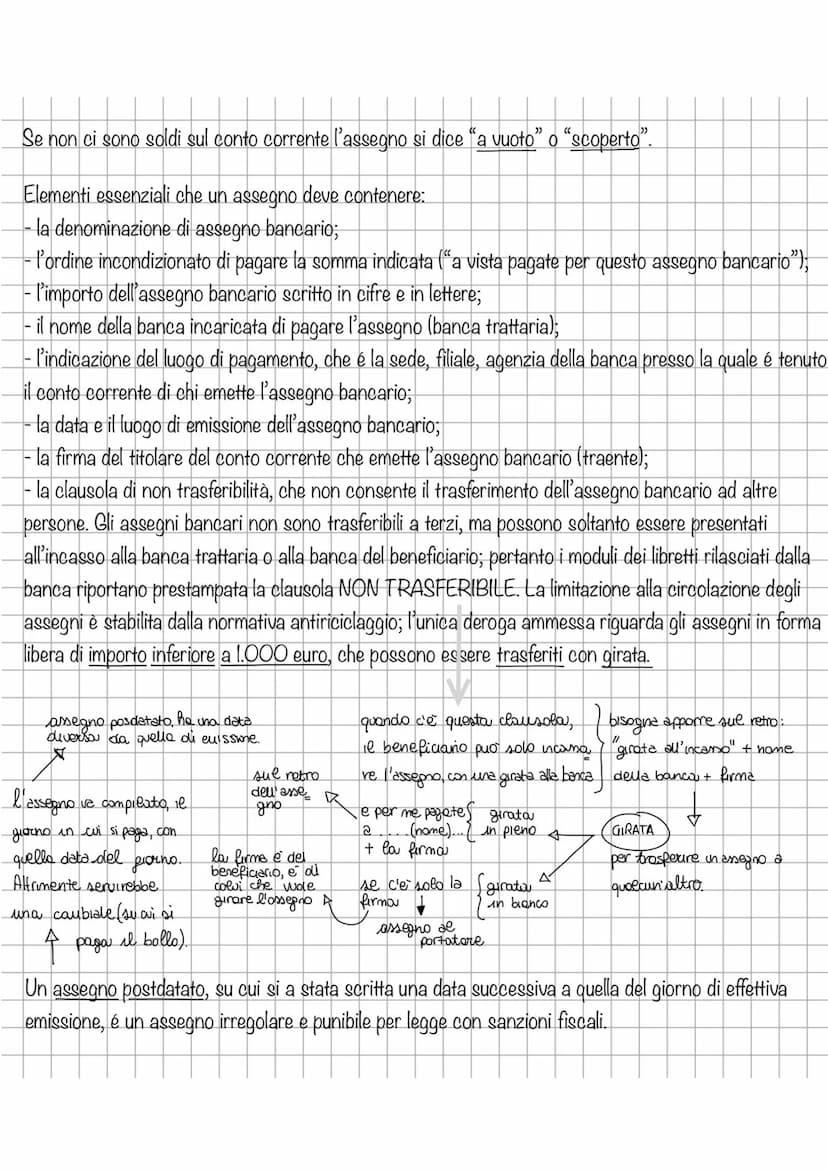 Se non ci sono soldi sul conto corrente l'assegno si dice “a vuoto” o “scoperto”.
Elementi essenziali che un assegno deve contenere:
- la denominazione di assegno bancario;
- l'ordine incondizionato di pagare la somma indicata (“a vista pagate per questo assegno bancario”);
- l'importo dell'assegno bancario scritto in cifre e in lettere;
- il nome della banca incaricata di pagare l'assegno (banca trattaria);
- l'indicazione del luogo di pagamento, che é la sede, filiale, agenzia della banca presso la quale é tenuto
il conto corrente di chi emette l'assegno bancario;
- la data e il luogo di emissione dell'assegno bancario;
- la firma del titolare del conto corrente che emette l'assegno bancario (traente);
- la clausola di non trasferibilità, che non consente il trasferimento dell'assegno bancario ad altre
persone. Gli assegni bancari non sono trasferibili a terzi, ma possono soltanto essere presentati
all'incasso alla banca trattaria o alla banca del beneficiario; pertanto i moduli dei libretti rilasciati dalla
banca riportano prestampata la clausola NON TRASFERIBILE. La limitazione alla circolazione degli
assegni è stabilita dalla normativa antiriciclaggio; l'unica deroga ammessa riguarda gli assegni in forma
libera di importo inferiore a 1.000 euro, che possono essere trasferiti con girata.
assegno posdatato, ha una data
diversa da quella di emissione.
l'assegno va compilato, il
giorno in cui si paga, con
quella data del giorno.
Altrimenti servirebbe
una cambiale (su cui si
paga il bollo).
sul retro
dell'asse=
gno
la firma è del
beneficiario, è di
colui che vuole
girare l'assegno
quando c'è questa clausola,
il beneficiario può solo incassa
re l'assegno, con una girata alla banca
bisogna apporre sul retro:
"girata all'incasso" + nome
della banca + firma
e per me pagate
a .... (nome)...
+ la firma
girata
in pieno
GIRATA
per trasferire un assegno a
qualcun'altro.
se c'è solo la
firma
girata
in bianco
assegno al
portatore
Un assegno postdatato, su cui si a stata scritta una data successiva a quella del giorno di effettiva
emissione, é un assegno irregolare e punibile per legge con sanzioni fiscali.